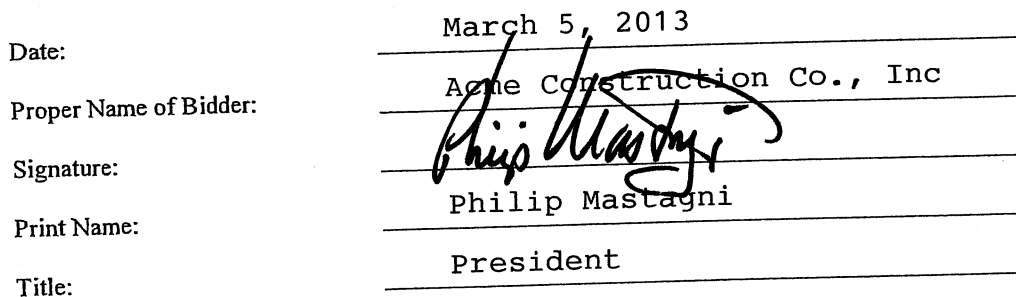 Date: March 5, 2013
Proper Name of Bidder: Acme Construction Co., Inc
Signature: Philip Mastagni
Print Name: Philip Mastagni
Title: President